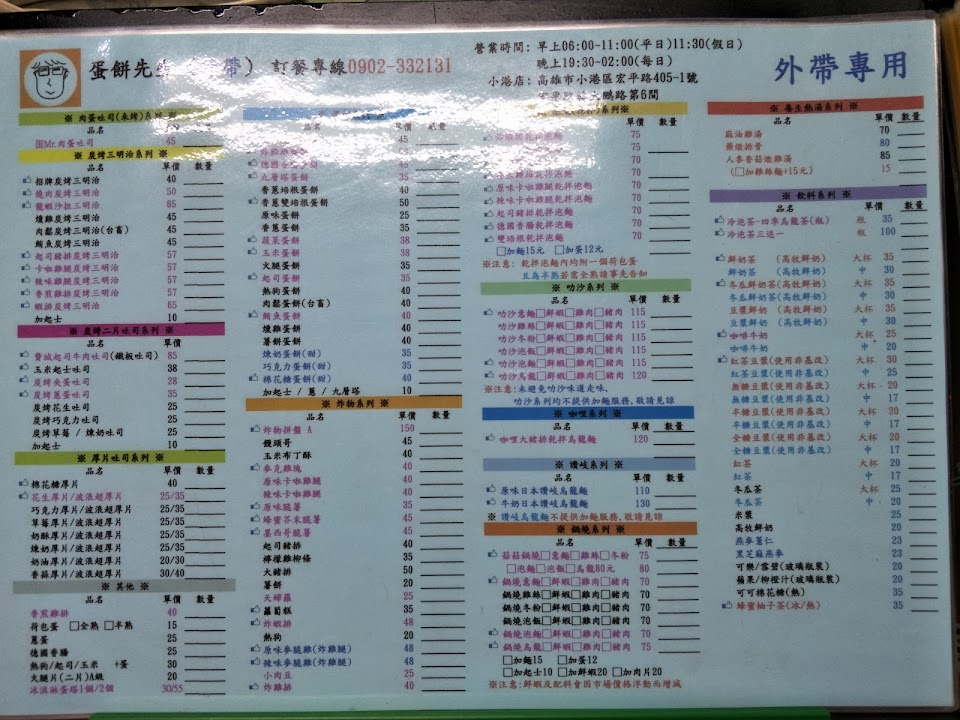 蛋餅先生 帶) 訂餐專線0902-332131
營業時間: 早上06:00~11:00(平日)11:30(假日)
晚上19:30~02:00(每日)
小港店: 高雄市小港區宏平路405-1號
大鵬路第6間
外帶專用
※ 肉蛋吐司(未烤)系列 ※
品名 數量
蛋Mr.肉蛋吐司 45
※ 炭烤三明治系列 ※
品名 單價 數量
招牌炭烤三明治 40
燒肉炭烤三明治 50
龍蝦沙拉三明治 65
燻雞炭烤三明治 45
肉鬆炭烤三明治(台畜) 45
鮪魚炭烤三明治 45
起司豬排炭烤三明治 57
卡啦雞腿炭烤三明治 57
辣味雞腿炭烤三明治 57
香煎雞排炭烤三明治 57
蝦排炭烤三明治 65
加起士 10
※ 炭烤二片吐司系列 ※
品名 單價 數量
費城起司牛肉吐司(鐵板吐司) 85
玉米起士吐司 38
炭烤夾蛋吐司 28
炭烤蔥蛋吐司 35
炭烤花生吐司 25
炭烤巧克力吐司 25
炭烤草莓 / 煉奶吐司 25
加起士 10
※ 厚片吐司系列 ※
品名 單價 數量
棉花糖厚片 40
花生厚片/波浪超厚片 25/35
巧克力厚片/波浪超厚片 25/35
草莓厚片/波浪超厚片 25/35
奶酥厚片/波浪超厚片 25/35
煉奶厚片/波浪超厚片 25/35
奶油厚片/波浪超厚片 20/30
香蒜厚片/波浪超厚片 30/40
※ 其他 ※
品名 單價 數量
香煎雞排 40
荷包蛋 □全熟 □半熟 15
蔥蛋 25
德國香腸 25
熱狗/起司/玉米 +蛋 30
火腿片(二片)A級 20
冰淇淋蛋塔1個/2個 30/55
數量
45
45
九層塔蛋餅 35
香蔥培根蛋餅 40
香蔥雙培根蛋餅 50
原味蛋餅 25
香蔥蛋餅 35
蔬菜蛋餅 38
玉米蛋餅 38
火腿蛋餅 35
起司蛋餅 35
熱狗蛋餅 40
肉鬆蛋餅(台畜) 40
鮪魚蛋餅 40
燻雞蛋餅 40
薯餅蛋餅 40
煉奶蛋餅(甜) 35
巧克力蛋餅(甜) 35
棉花糖蛋餅(甜) 40
加起士 / 蔥 / 九層塔 10
※ 炸物系列 ※
品名 單價 數量
炸物拼盤 A 150
饅頭哥 45
玉米布丁酥 40
麥克雞塊 40
原味卡啦雞腿 40
辣味卡啦雞腿 40
原味脆薯 35
蜂蜜芥末脆薯 45
墨西哥脆薯 45
起司豬排 40
檸檬雞柳條 35
大豬排 50
薯餅 20
天婦羅 25
蘿蔔糕 35
炸蝦排 48
熱狗 20
原味麥脆雞(炸雞腿) 48
辣味麥脆雞(炸雞腿) 48
小肉豆 25
炸雞排 40
系列※
單價 數量
75
75
原味卡啦雞腿乾拌泡麵 70
辣味卡啦雞腿乾拌泡麵 70
起司豬排乾拌泡麵 70
德國香腸乾拌泡麵 70
雙培根乾拌泡麵 70
□加麵15元 □加蛋12元
※注意: 乾拌泡麵內均附一個荷包蛋
且為半熟若需全熟請事先告知
※ 叻沙系列 ※
品名 單價 數量
叻沙意麵□鮮蝦□雞肉□豬肉 115
叻沙雞絲□鮮蝦□雞肉□豬肉 115
叻沙冬粉□鮮蝦□雞肉□豬肉 115
叻沙泡飯□鮮蝦□雞肉□豬肉 115
叻沙泡麵□鮮蝦□雞肉□豬肉 115
叻沙烏龍□鮮蝦□雞肉□豬肉 120
※注意:未避免叻沙味道走味,
叻沙系列均不提供加麵服務,敬請見諒
※ 咖哩系列 ※
品名 單價 數量
咖哩大豬排乾拌烏龍麵 120
※ 讚岐系列 ※
品名 單價 數量
原味日本讚岐烏龍麵 110
牛奶日本讚岐烏龍麵 130
※ 讚岐烏龍麵不提供加麵服務,敬請見諒
※ 鍋燒系列 ※
品名 單價 數量
菇菇鍋燒□意麵□雞絲□冬粉 75
□泡麵□泡飯□烏龍80元 80
鍋燒意麵□鮮蝦□雞肉□豬肉 70
鍋燒雞絲□鮮蝦□雞肉□豬肉 70
鍋燒冬粉□鮮蝦□雞肉□豬肉 70
鍋燒泡飯□鮮蝦□雞肉□豬肉 70
鍋燒泡麵□鮮蝦□雞肉□豬肉 70
鍋燒烏龍□鮮蝦□雞肉□豬肉 75
□加麵15 □加蛋12
□加起士10 □加鮮蝦20 □加肉片20
※注意:鮮蝦及配料會因市場價格浮動而增減
※ 養生熱湯系列 ※
品名 單價 數量
麻油雞湯 70
藥燉排骨 80
人參香菇燉雞湯 85
(□加雞絲麵+15元) 15
※ 飲料系列 ※
品名 單價 數量
冷泡茶-四季烏龍茶(瓶) 瓶 35
冷泡茶三送一 瓶 100
鮮奶茶 (高牧鮮奶) 大杯 35
鮮奶茶 (高牧鮮奶) 中 30
冬瓜鮮奶茶(高牧鮮奶) 大杯 35
冬瓜鮮奶茶(高牧鮮奶) 中 30
豆漿鮮奶 (高牧鮮奶) 大杯 35
豆漿鮮奶 (高牧鮮奶) 中 30
咖啡牛奶 大杯 25
咖啡牛奶 中 20
紅茶豆漿(使用非基改) 大杯 30
紅茶豆漿(使用非基改) 中 25
無糖豆漿(使用非基改) 大杯 20
無糖豆漿(使用非基改) 中 17
半糖豆漿(使用非基改) 大杯 20
半糖豆漿(使用非基改) 中 17
全糖豆漿(使用非基改) 大杯 20
全糖豆漿(使用非基改) 中 17
紅茶 大杯 20
紅茶 中 17
冬瓜茶 大杯 25
冬瓜茶 中 20
米漿 25
高牧鮮奶 25
燕麥薏仁 23
黑芝麻燕麥 23
可樂/雪碧(玻璃瓶裝) 20
蘋果/柳橙汁(玻璃瓶裝) 20
可可棉花糖(熱) 35
蜂蜜柚子茶(冰/熱) 35